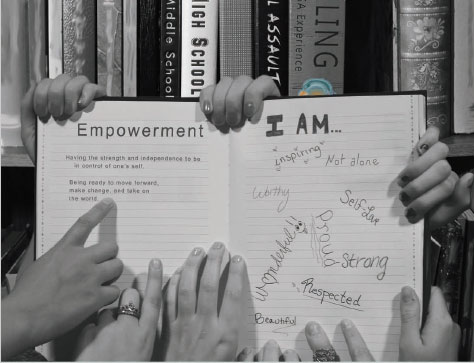 Middle School
HIGH SCHOOL
L ASSAULT
LING
A Experience
Empowerment
Having the strength and independence to be
in control of one's self.
Being ready to move forward,
make change, and take on
the world.
I AM...
"Inspiring"
Not alone
Worthy
Self-Love
Wonderful!!
Proud
Strong
Respected
Beautiful